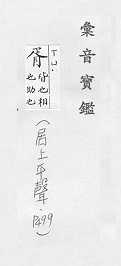 彙音寶鑑
丁一.
胥 皆也相
也助也
(居上平聲.
P499)